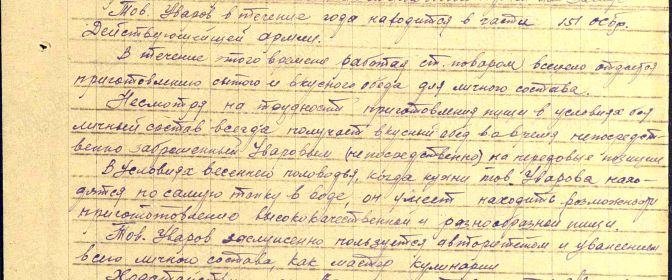 Тов. Уваров в течение года находится в части 151 осбр.
Действующей армии.
В течение этого времени работая ст. поваром всецело отдается
приготовлению сытого и вкусного обеда для личного состава.
Несмотря на трудности приготовления пищи в условиях боя
личный состав всегда получает вкусный обед во время непосредст-
венно завезенный Уваровым (непосредственно) на передовые позиции
В условиях весеннего половодья, когда кухни тов. Уварова нахо-
дятся по самую топку в воде, он умеет находить возможности
приготовлению высококачественной и разнообразной пищи.
Тов. Уваров заслуженно пользуется авторитетом и уважением
всего личного состава, как мастер кулинарии